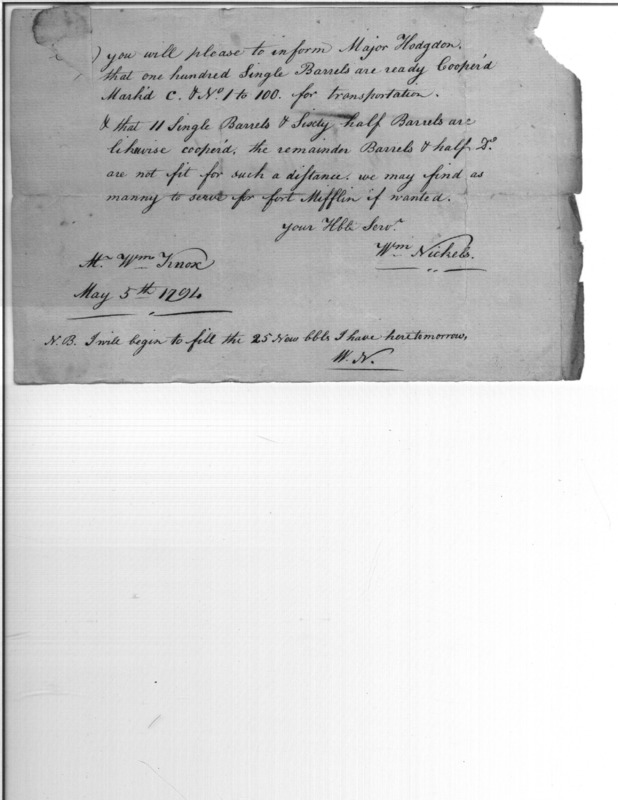 ) you will please to inform Major Hodgdon,
that one hundred Single Barrels are ready Cooper'd
Mark'd C. & No. 1 to 100. for transportation.
& that 11 Single Barrels & Sixty half Barrels are
likewise cooper'd. the remainder Barrels & half Do.
are not fit for such a distance. we may find as
manny to serve for fort Mifflin if wanted.
your Hble Servt.
Wm Nickels.
Mr. Wm Knox
May 5th 1794
N.B. I will begin to fill the 25 New bbls I have here tomorrow,
W. N.